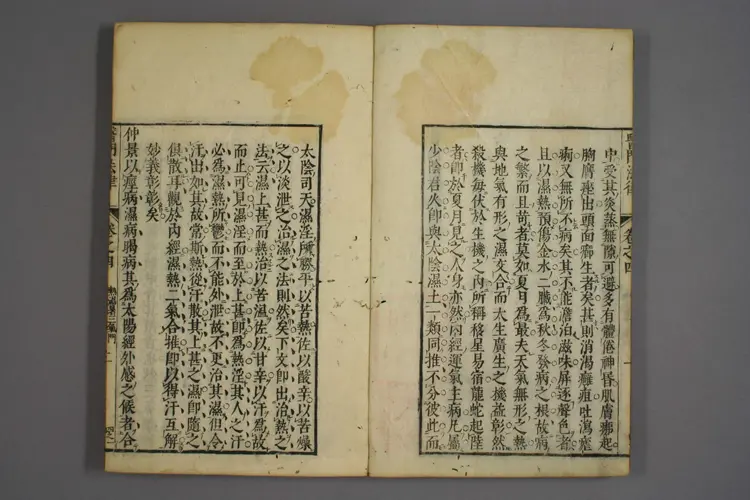 中受其炎蒸無隙可避多有體倦神昏肌膚痱起
胸膺痤出頭面癤生者矣甚則消渴癰疽吐瀉瘧
痢又無所不病矣其不能澹泊滋味屏逐聲色者
且以濕熱預傷金水二臟為秋冬發病之根故病
之繁而且苛者莫如夏月為最夫天氣無形之熱
與地氣有形之濕交合而大生廣生之機益彰然
殺機每伏於生機之內所稱移星易宿龍蛇起陸
者即於夏月見之人身亦然內經運氣主病凡屬
少陰君火即與太陰濕土一類同推不分彼此而
卷之四
太陰司天濕淫所勝平以苦熱佐以酸辛以苦燥
之以淡泄之治濕之法則然矣下文即出治熱之
法云濕上甚而熱治以苦溫佐以甘辛以汗為故
而止可見濕淫而至於上甚即為熱淫其人之汗
必為濕熱所鬱而不能外泄故不更治其濕但令
汗出如其故常斯熱從汗散其上甚之濕即隨之
俱散耳觀於內經濕熱二氣合推即以得汗互解
妙義彰彰矣
仲景以痙病濕病暍病其為太陽經外感之候者合
醫門法律
卷之四